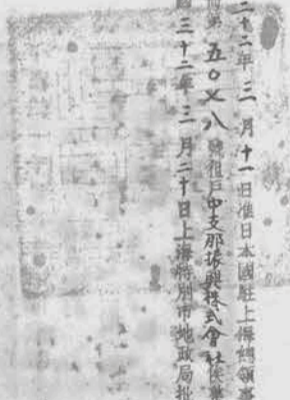 二十二年三月十一日准日本國駐上海總領事
第五〇七八號租戶中支那振興株式會社係業
國三十二年三月二十日上海特別市地政局批